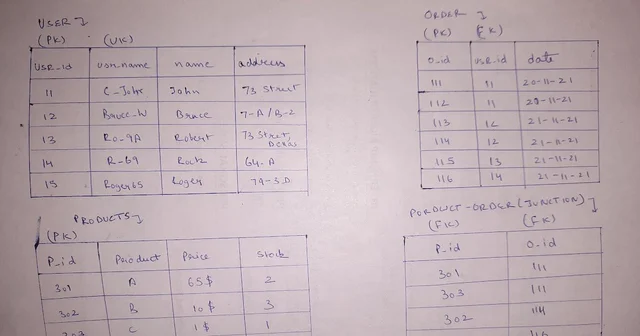 USER
(PK) (UK)
usr_id usn_name name address
11 C_John John 73 Street
12 Bruce_W Bruce 7-A/B-2
13 Ro-9A Robert 73 Street,
14 R-69 Rock 64-A
15 Roger65 Roger 79-S.D
ORDER
(PK) (FK)
O_id usr_id date
111 11 20-11-21
112 11 20-11-21
113 12 21-11-21
114 12 21-11-21
115 13 21-11-21
116 14 21-11-21
PRODUCTS
(PK)
P_id Product Price Stock
301 A 65$ 2
302 B 10$ 3
303 C 1$ 1
PORDUCT-ORDER (JUNCTION)
(FK) (FK)
P_id O_id
301 111
303 111
302 114
116